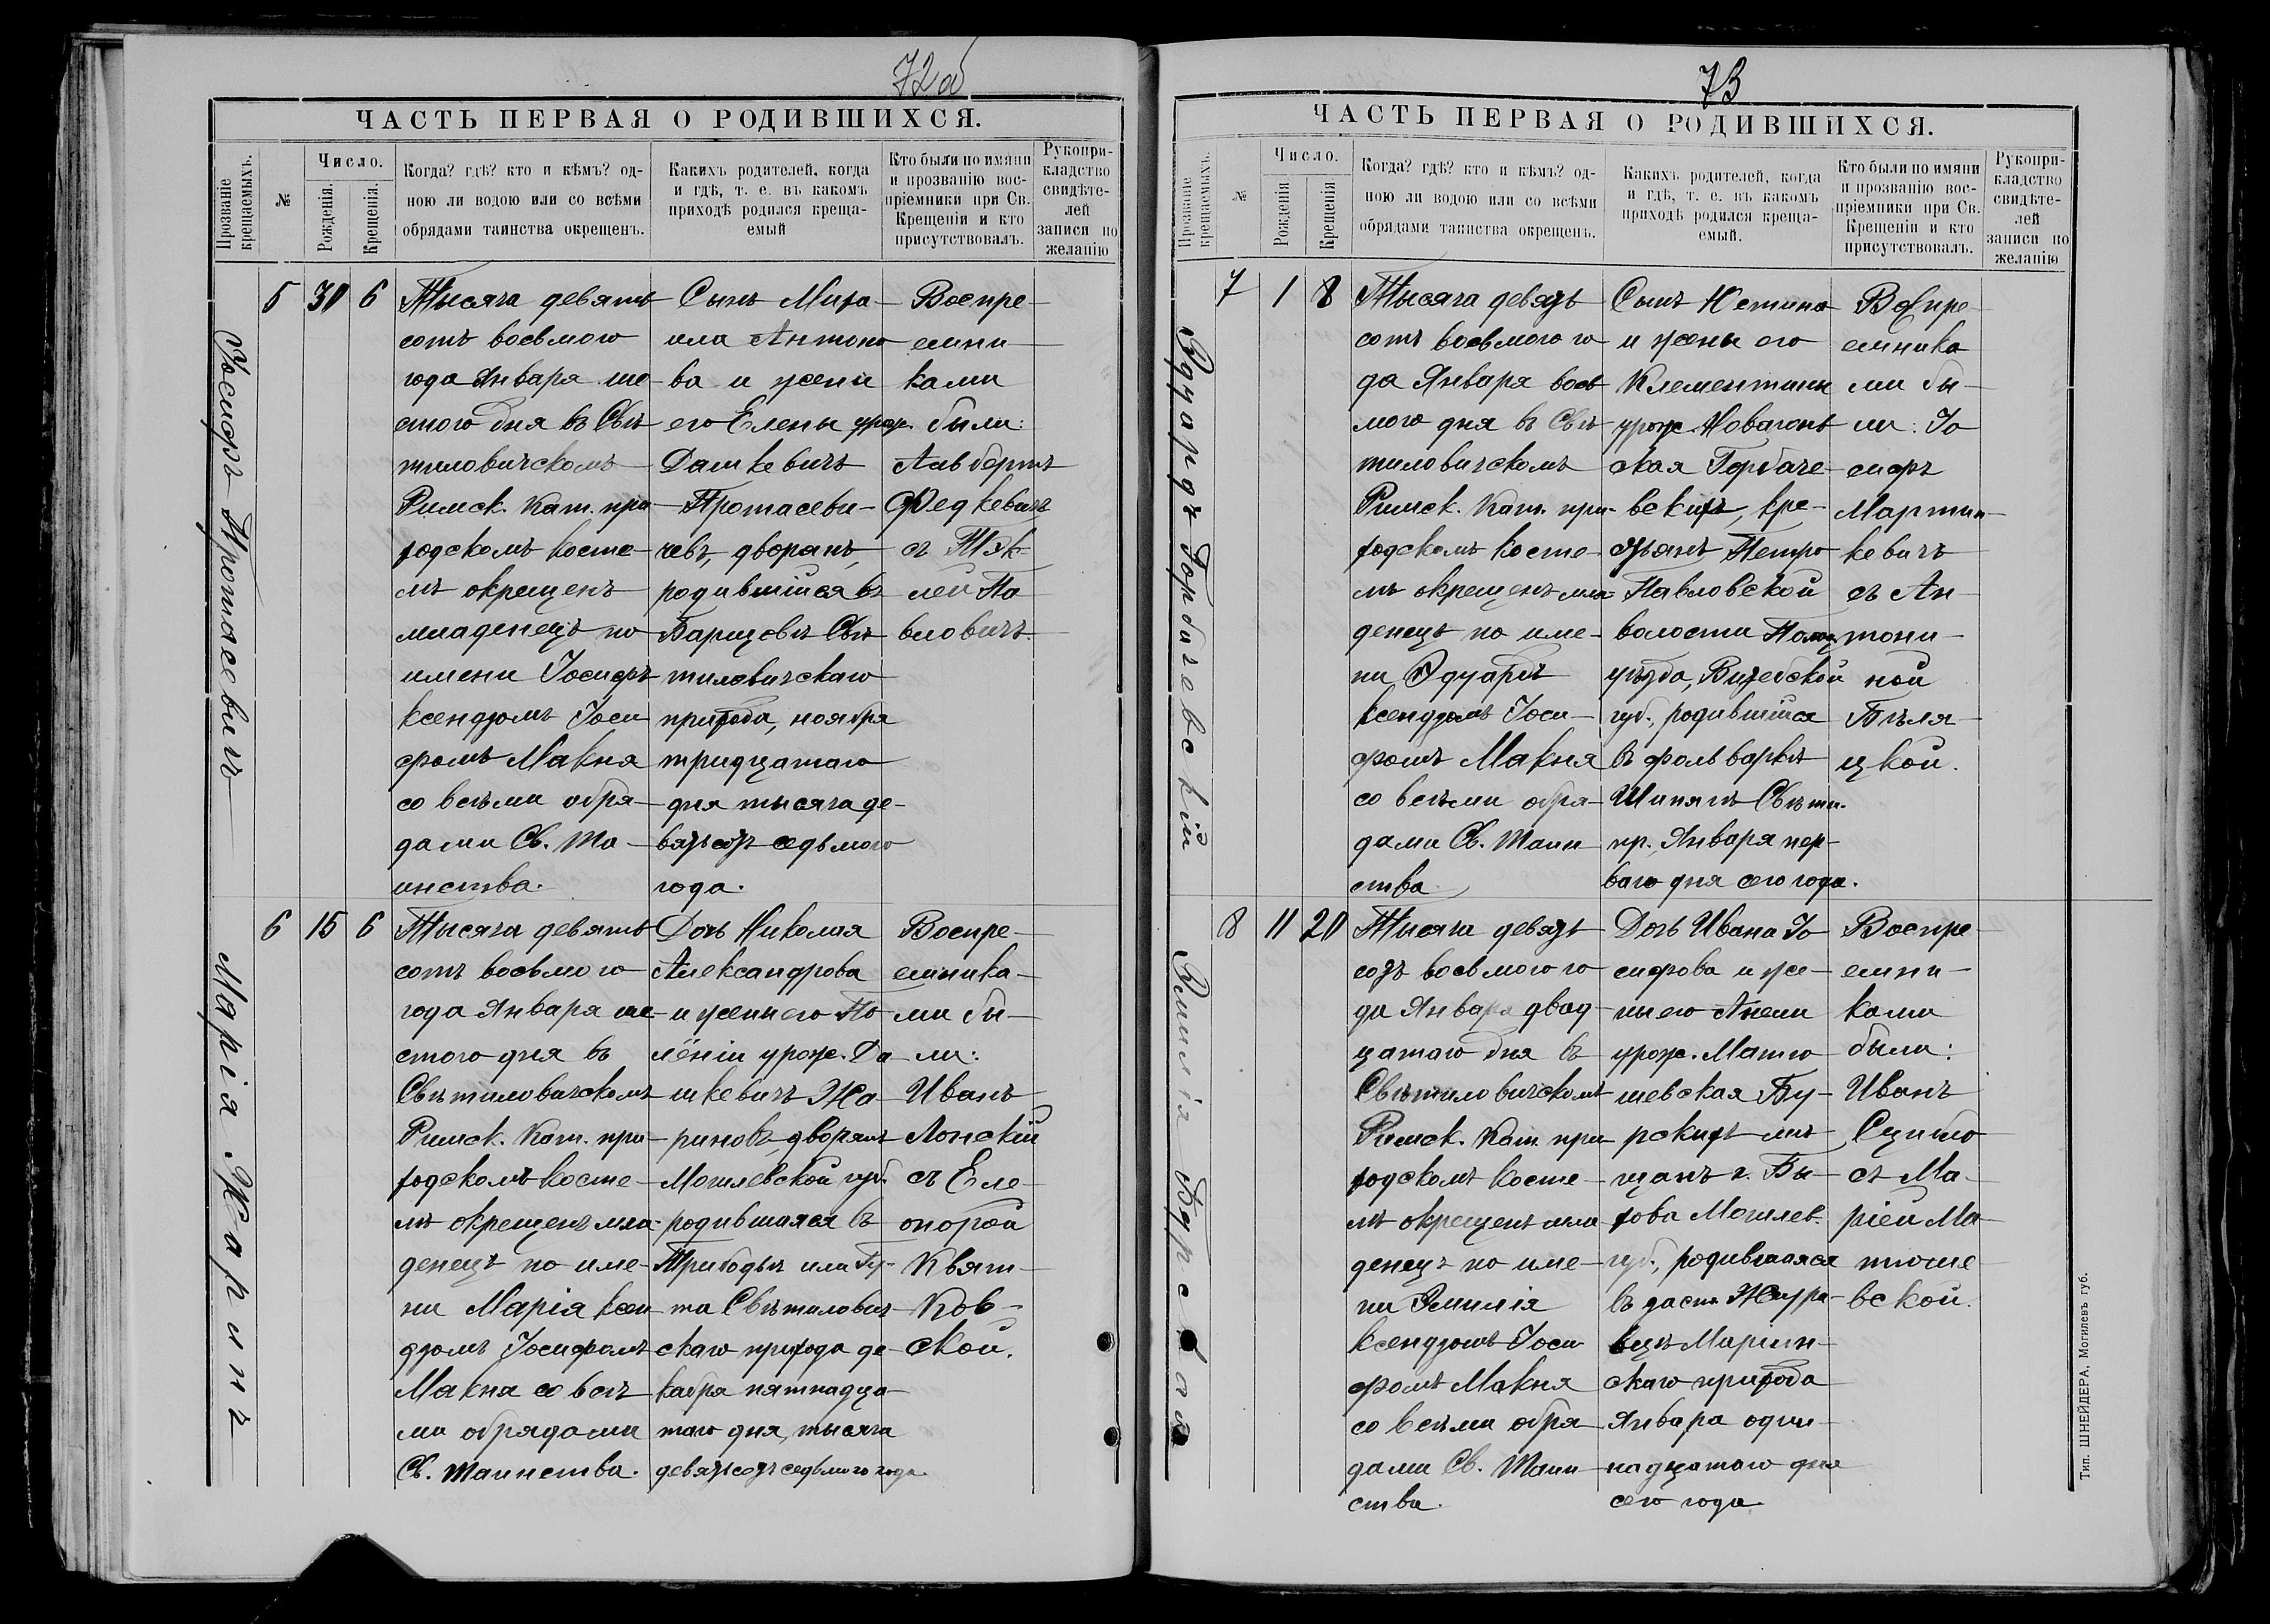 72об
ЧАСТЬ ПЕРВАЯ О РОДИВШИХСЯ.
Прозваніе крещаемыхъ.
№
Число.
Рожденія.
Крещенія.
Когда? гдѣ? кто и кѣмъ? од-
ною ли водою или со всѣми
обрядами таинства окрещенъ.
Какихъ родителей, когда
и гдѣ, т. е. въ какомъ
приходѣ родился креща-
емый
Кто были по имяни
и прозванію вос-
пріемники при Св.
Крещеніи и кто
присутствовалъ.
Рукопри-
кладство
свидѣте-
лей
записи по
желанію
Іосифъ Протасевичъ
5 30 6
Тысяча девять
сотъ восьмого
года Января ше
стого дня въ Свѣ
тиловичскомъ
Римск. Кат. при
ходскомъ косте-
лѣ окрещенъ
младенецъ по
имени Іосифъ
ксендзомъ Іоси
фомъ Макня
со всѣми обря-
дами Св. Та-
инства.
Сынъ Миха-
ила Антоно
ва и жены
его Елены урож.
Дашкевичъ
Протасеви-
чевъ, дворянъ,
родившійся въ
Барщовѣ Свѣ
тиловичскаго
прихода, ноября
тридцатаго
дня тысяча де-
вятьсотъ седьмого
года.
Воспре-
емни-
ками
были:
Альбертъ
Федкевичъ
съ Тэк-
лей Па
вловичъ.
Марія Жаринъ
6 15 6
Тысяча девять
сотъ восьмого
года Января ше-
стого дня въ
Свѣтиловичскомъ
Римск. Кат. при-
ходскомъ косте-
лѣ окрещенъ мла-
денецъ по име-
ни Марія ксен
дзомъ Іосифомъ
Макня со всѣ
ми обрядами
Св. Таинства.
Дочь Николая
Александрова
и жены его По
лёніи урож. Да
шкевичъ Жа-
риновъ, дворянъ
Могилевской губ.
родившаяся въ
Свѣтилович
скаго прихода де-
кабря пятнадца-
таго дня, тысяча
девятьсотъ седьмого года.
Воспре-
емника-
ми бы-
ли:
Иванъ
Лонскій
съ Еле-
онорой
Квят-
ков-
ской.
73
ЧАСТЬ ПЕРВАЯ О РОДИВШИХСЯ.
Прозваніе крещаемыхъ.
№
Число.
Рожденія
Крещенія
Когда? гдѣ? кто и кѣмъ? од-
ною ли водою или со всѣми
обрядами таинства окрещенъ.
Какихъ родителей, когда
и гдѣ, т. е. въ какомъ
приходѣ родился креща-
емый.
Кто были по имяни
и прозванію вос-
пріемники при Св.
Крещеніи и кто
присутствовалъ.
Рукопри-
кладство
свидѣте-
лей
записи по
желанію
Эдуардъ Горбачевскій
7 1 8
Тысяча девять
сотъ восьмого го
да Января вось
мого дня въ Свѣ
тиловичскомъ
Римск. Кат. при-
ходскомъ косте-
лѣ окрещенъ мла-
денецъ по име-
ни Эдуардъ
ксендзомъ Іоси-
фомъ Макня
со всѣми обря-
дами Св. Таин
ства.
Сынъ Юстина
и жены его
Клементины
урож. Новагонь
ская Горбаче-
вскихъ, кре-
стьянъ Петро
Павловской
волости Полоц.
уѣзда, Витебской
губ., родившійся
въ фольваркѣ
Свѣти.
пр. Января пер-
ваго дня сего года.
Воспре-
емника
ми бы-
ли: Іо
сифъ
Мартин-
кевичъ
съ Ан-
тони-
ной
Бѣля-
цкой.
Эмилія Бурская
8 11 20
Тысяча девять
сотъ восьмого го
да Января двад-
цатаго дня въ
Свѣтиловичскомъ
Римск. Кат. при
ходскомъ косте-
лѣ окрещенъ мла
денецъ по име-
ни Эмилія
ксендзомъ Іоси
фомъ Макня
со всѣми обря
дами Св. Таин-
ства.
Дочь Ивана Іо
сифова и же-
ны его Анели
урож. Матю
шевская Бу-
рскихъ мѣ
щанъ г. Бы-
хова Могилев.
губ., родившаяся
въ заст. Жура-
вцѣ Маріин-
скаго прихода
Января один-
надцатаго дня
сего года.
Воспре
емни-
ками
были:
Иванъ
Сцибло
съ Ма-
ріей Ма-
тюше
вской.
Тип. ШНЕЙДЕРА, Могилевъ губ.